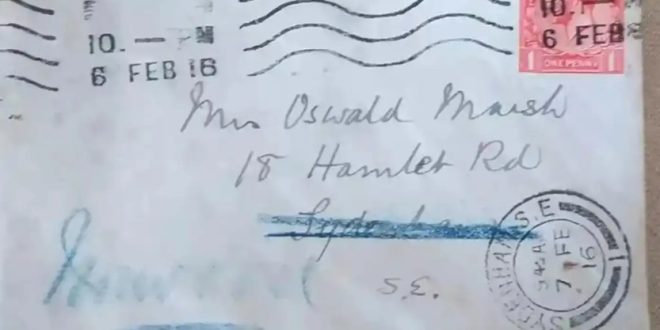 10. — PM
6 FEB 16
10.
6 FEB
1 ONE PENNY 1
Mrs Oswald Marsh
18 Hamlet Rd
Sydenham
S.E.
SYDENHAM S.E.
7 FE
16